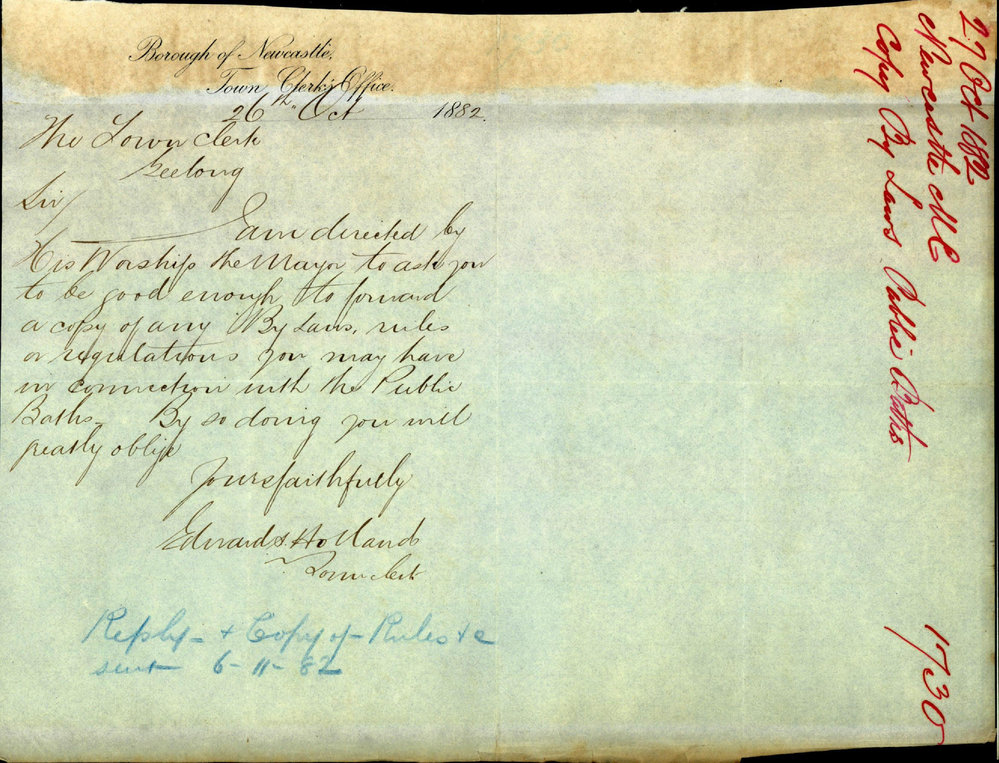 Borough of Newcastle,
Town Clerk's Office.
26th Oct 1882.
The Town Clerk
Geelong
Sir/
I am directed by
His Worship the Mayor to ask you
to be good enough to forward
a copy of any By Laws, rules
or regulations you may have
in connection with the Public
Baths. By so doing you will
greatly oblige
Yours faithfully
Edward S. Holland
Town Clerk
Reply - & Copy of Rules &c
sent 6-11-82
27 Oct 1882
Newcastle M C
Copy By Laws Public Baths
1730